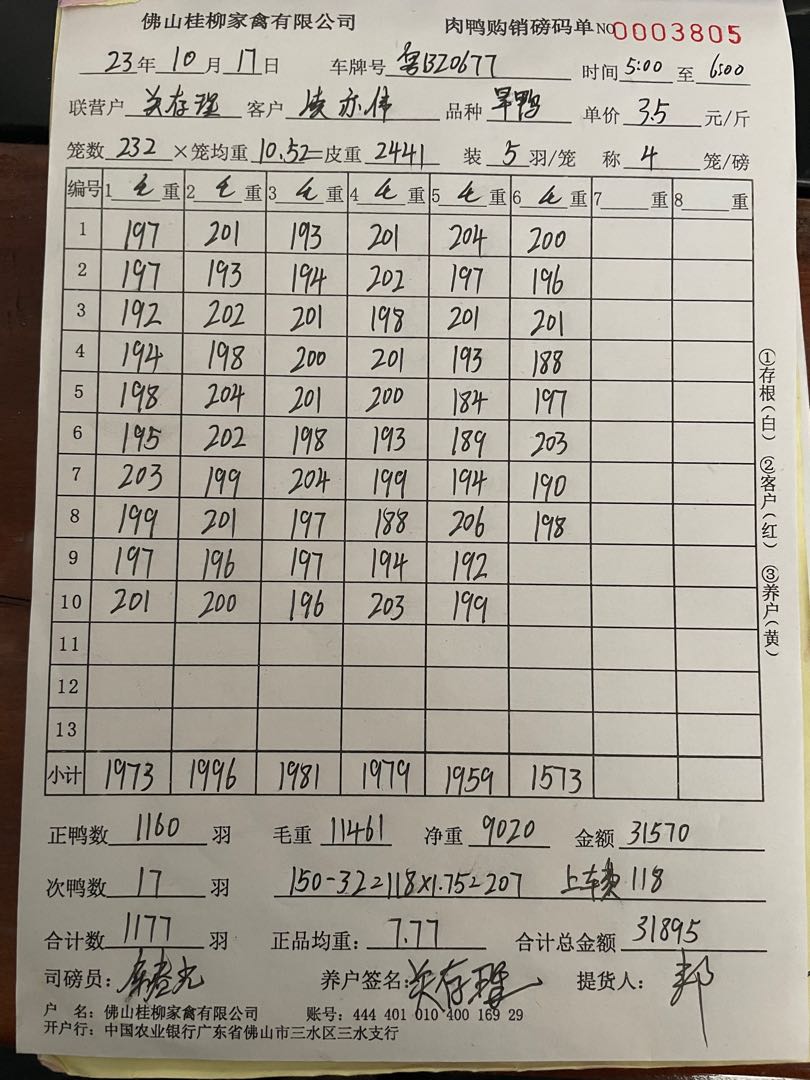 佛山桂柳家禽有限公司 肉鸭购销磅码单 NO 0003805
23年10月17日 车牌号 粤BZ0677 时间 5:00 至 6:00
联营户 关存理 客户 凌亦伟 品种 旱鸭 单价 3.5 元/斤
笼数 232 ×笼均重 10.52=皮重 2441 装 5 羽/笼 称 4 笼/磅
编号 1 毛 重 2 毛 重 3 毛 重 4 毛 重 5 毛 重 6 毛 重 7 重 8 重
1 197 201 193 201 204 200
2 197 193 194 202 197 196
3 192 202 201 198 201 201
4 194 198 200 201 193 188
5 198 204 201 200 184 197
6 195 202 198 193 189 203
7 203 199 204 199 194 190
8 199 201 197 188 206 198
9 197 196 197 194 192
10 201 200 196 203 199
11
12
13
小计 1973 1996 1981 1979 1959 1573
正鸭数 1160 羽 毛重 11461 净重 9020 金额 31570
次鸭数 17 羽 150-32=118×1.75=207 上车费 118
合计数 1177 羽 正品均重: 7.77 合计总金额 31895
司磅员: 养户签名: 关存理 提货人: 邦
户 名: 佛山桂柳家禽有限公司 账号: 444 401 010 400 169 29
开户行: 中国农业银行广东省佛山市三水区三水支行
①存根(白) ②客户(红) ③养户(黄)